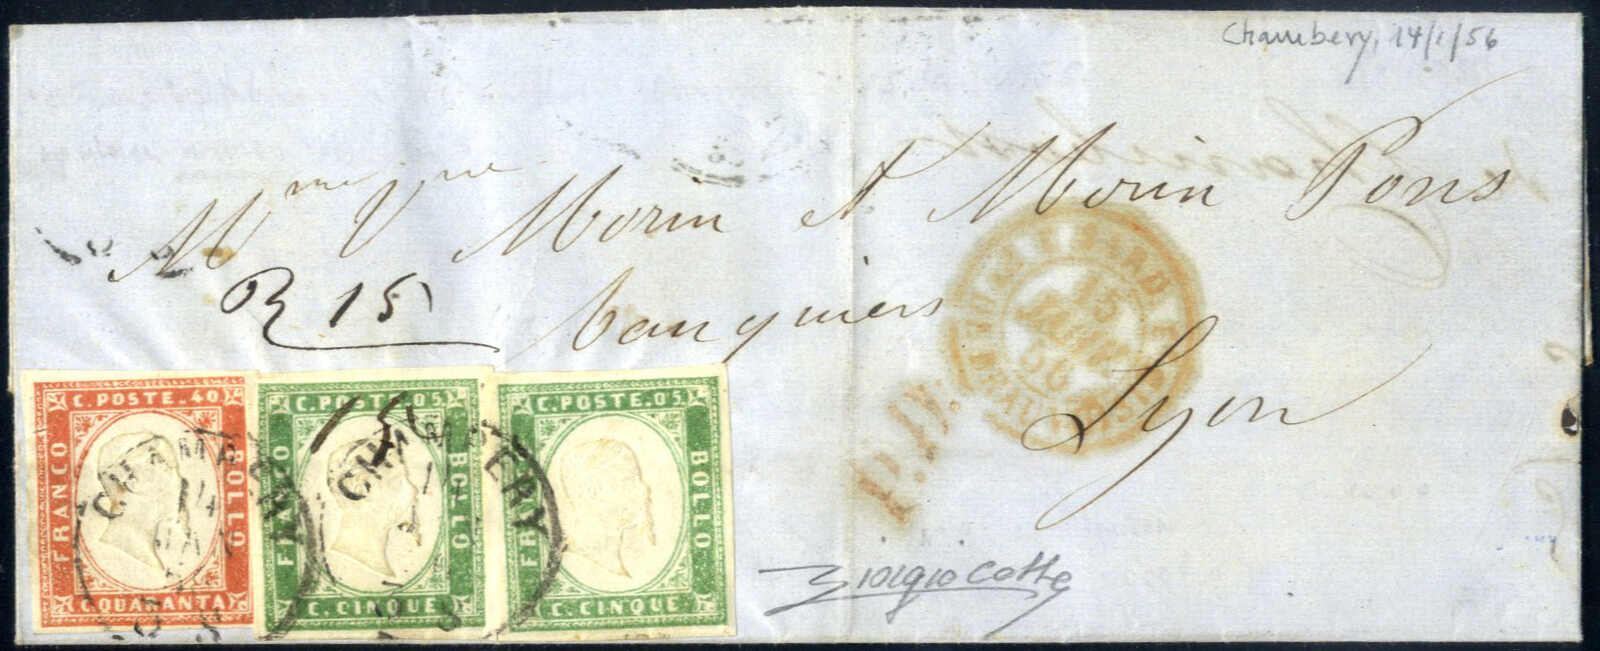 Chambery, 14/1/56
Mme Vve Morin et Morin Pons
R 15
banquiers
Lyon
15
P.D.
C. POSTE. 40
FRANCO
BOLLO
C. QUARANTA
CHAMBERY
14
C. POSTE. 05
BOLLO
C. CINQUE
CHAMBERY
15
C. POSTE. 05
BOLLO
C. CINQUE
Giorgio Colla